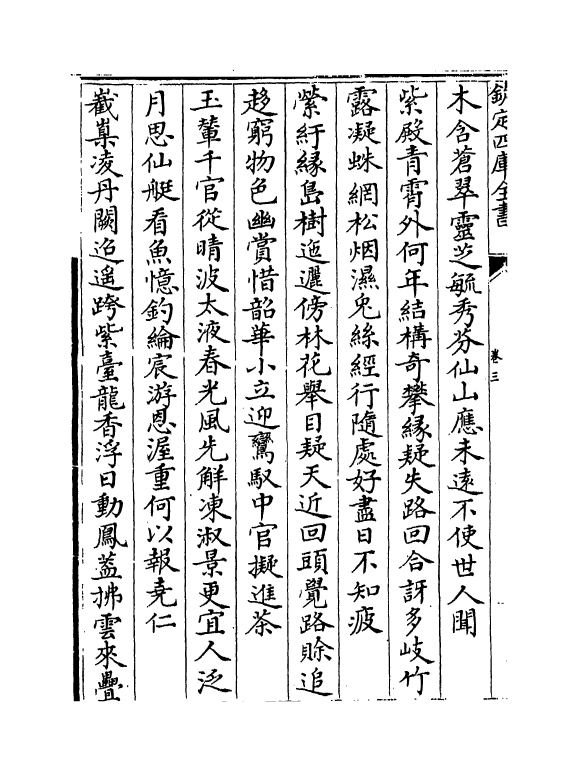 欽定四庫全書
卷三
木含蒼翠靈芝毓秀芬仙山應未遠不使世人聞
紫殿青霄外何年結構奇攀緣疑失路回合訝多岐竹
露凝蛛網松烟濕兎絲經行隨處好盡日不知疲
縈紆緣島樹迤邐傍林花舉目疑天近回頭覺路賖追
趍窮物色幽賞惜韶華小立迎鸞馭中官擬進茶
玉輦千官從晴波太液春光風先解凍淑景更宜人泛
月思仙艇看魚憶釣綸宸游恩渥重何以報堯仁
巀嶪凌丹闕迢遥跨紫臺龍香浮日動鳳葢拂雲來疊